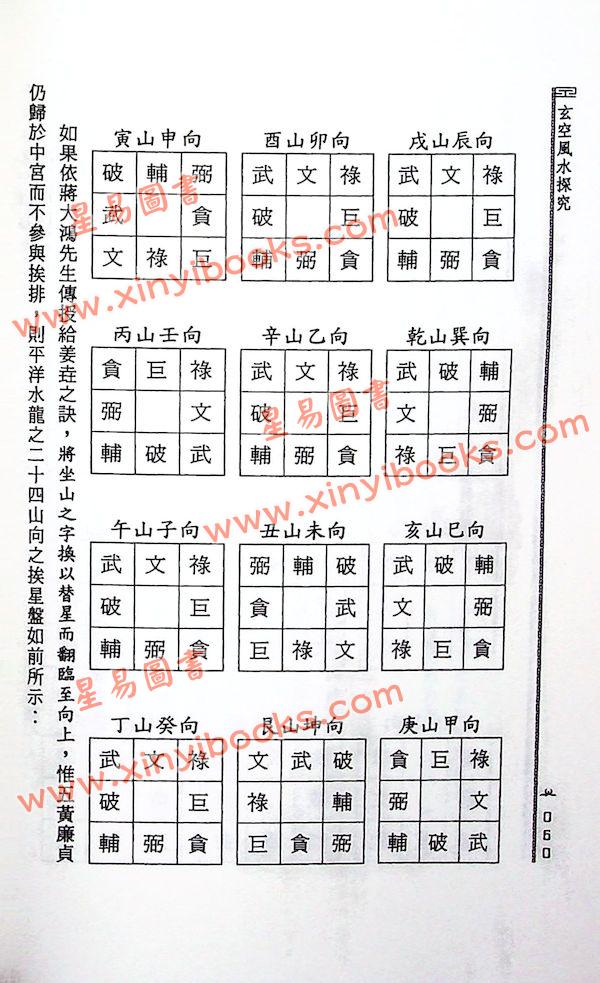 玄空風水探究
060
寅山申向
破 輔 弼
武 貪
文 祿 巨
酉山卯向
武 文 祿
破 巨
輔 弼 貪
戌山辰向
武 文 祿
破 巨
輔 弼 貪
丙山壬向
貪 巨 祿
弼 文
輔 破 武
辛山乙向
武 文 祿
破 巨
輔 弼 貪
乾山巽向
武 破 輔
文 弼
祿 巨 貪
午山子向
武 文 祿
破 巨
輔 弼 貪
丑山未向
弼 輔 破
貪 武
巨 祿 文
亥山巳向
武 破 輔
文 弼
祿 巨 貪
丁山癸向
武 文 祿
破 巨
輔 弼 貪
艮山坤向
文 武 破
祿 輔
巨 貪 弼
庚山甲向
貪 巨 祿
弼 文
輔 破 武
如果依蔣大鴻先生傳授給姜垚之訣，將坐山之字換以替星而翻臨至向上，惟五黃廉貞
仍歸於中宮而不參與挨排，則平洋水龍之二十四山向之挨星盤如前所示：
星易圖書
www.xinyibooks.com
星易圖書
www.xinyibooks.com
星易圖書
www.xinyibooks.com